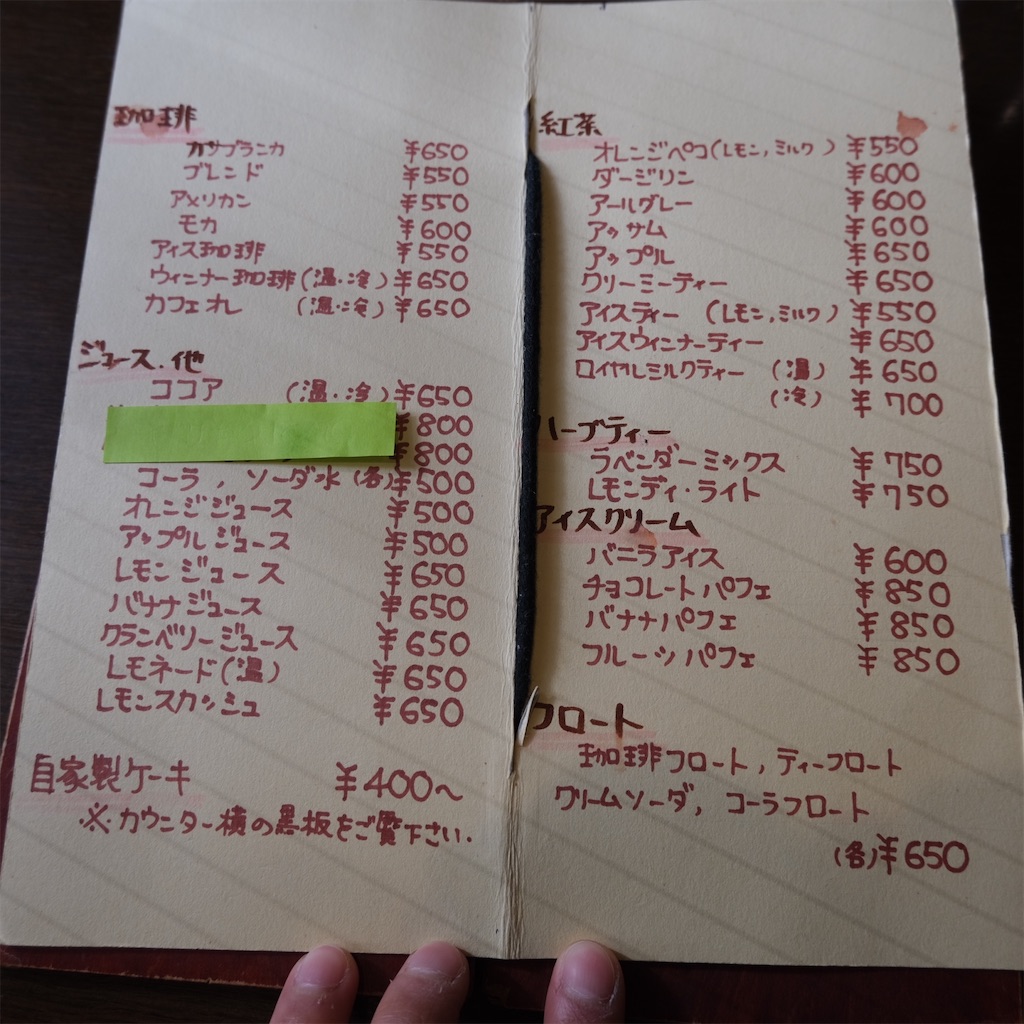 珈琲
カサブランカ ¥650
ブレンド ¥550
アメリカン ¥550
モカ ¥600
アイス珈琲 ¥550
ウィンナー珈琲(温・冷) ¥650
カフェオレ (温・冷) ¥650
ジュース、他
ココア (温・冷) ¥650
¥800
¥800
コーラ, ソーダ水(各) ¥500
オレンジジュース ¥500
アップルジュース ¥500
レモンジュース ¥650
バナナジュース ¥650
クランベリージュース ¥650
レモネード(温) ¥650
レモンスカッシュ ¥650
自家製ケーキ ¥400〜
※カウンター横の黒板をご覧下さい.
紅茶
オレンジペコ(レモン,ミルク) ¥550
ダージリン ¥600
アールグレー ¥600
アッサム ¥600
アップル ¥650
クリーミーティー ¥650
アイスティー (レモン,ミルク) ¥550
アイスウィンナーティー ¥650
ロイヤルミルクティー (温) ¥650
(冷) ¥700
ハーブティー
ラベンダーミックス ¥750
レモンディ・ライト ¥750
アイスクリーム
バニラアイス ¥600
チョコレートパフェ ¥850
バナナパフェ ¥850
フルーツパフェ ¥850
フロート
珈琲フロート, ティーフロート
クリームソーダ, コーラフロート
(各)¥650